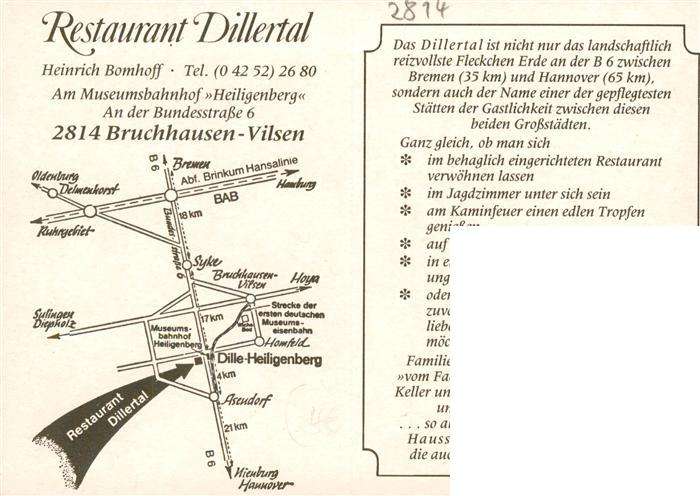 2814
Restaurant Dillertal
Heinrich Bomhoff · Tel. (0 42 52) 26 80
Am Museumsbahnhof »Heiligenberg«
An der Bundesstraße 6
2814 Bruchhausen-Vilsen
B 6
Bremen
Abf. Brinkum Hansalinie
Oldenburg
Delmenhorst
Hamburg
BAB
Ruhrgebiet
Bundesstraße 6
18 km
Syke
Bruchhausen-
Vilsen
Hoya
Sulingen
Diepholz
17 km
Strecke der
ersten deutschen
Museums-
eisenbahn
Museums-
bahnhof
Heiligenberg
Homfeld
Dille-Heiligenberg
4 km
Restaurant
Dillertal
Asendorf
21 km
B 6
Nienburg
Hannover
Das Dillertal ist nicht nur das landschaftlich
reizvollste Fleckchen Erde an der B 6 zwischen
Bremen (35 km) und Hannover (65 km),
sondern auch der Name einer der gepflegtesten
Stätten der Gastlichkeit zwischen diesen
beiden Großstädten.
Ganz gleich, ob man sich
✻ im behaglich eingerichteten Restaurant
verwöhnen lassen
✻ im Jagdzimmer unter sich sein
✻ am Kaminfeuer einen edlen Tropfen
✻ auf
✻ in e
ung
✻ oder
zuv
lieb
möc
Familie
»vom Fa
Keller un
un
. . . so a
Hauss
die auc